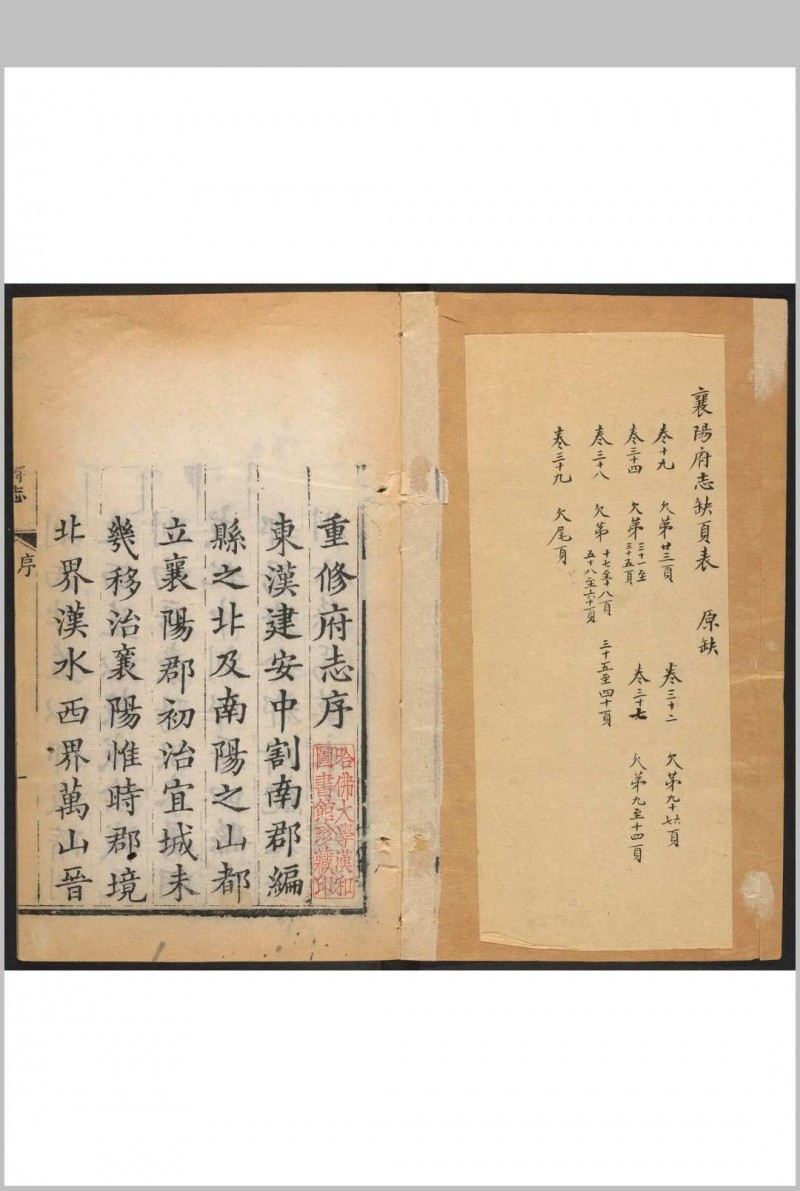 襄陽府志缺頁表 原缺
卷十九 欠第廿三頁 卷三十二 欠第九十七六頁
卷三十四 欠第三十一至三十五頁 卷三十七 欠第九至十四頁
卷三十八 欠第十七至十八頁 三十五至四十頁
五十八至六十一頁
卷三十九 欠尾頁
重修府志序
哈佛大學漢和
圖書館珍藏印
東漢建安中割南郡編
縣之北及南陽之山都
立襄陽郡初治宜城未
幾移治襄陽惟時郡境
北界漢水西界萬山晉
府志
序
一